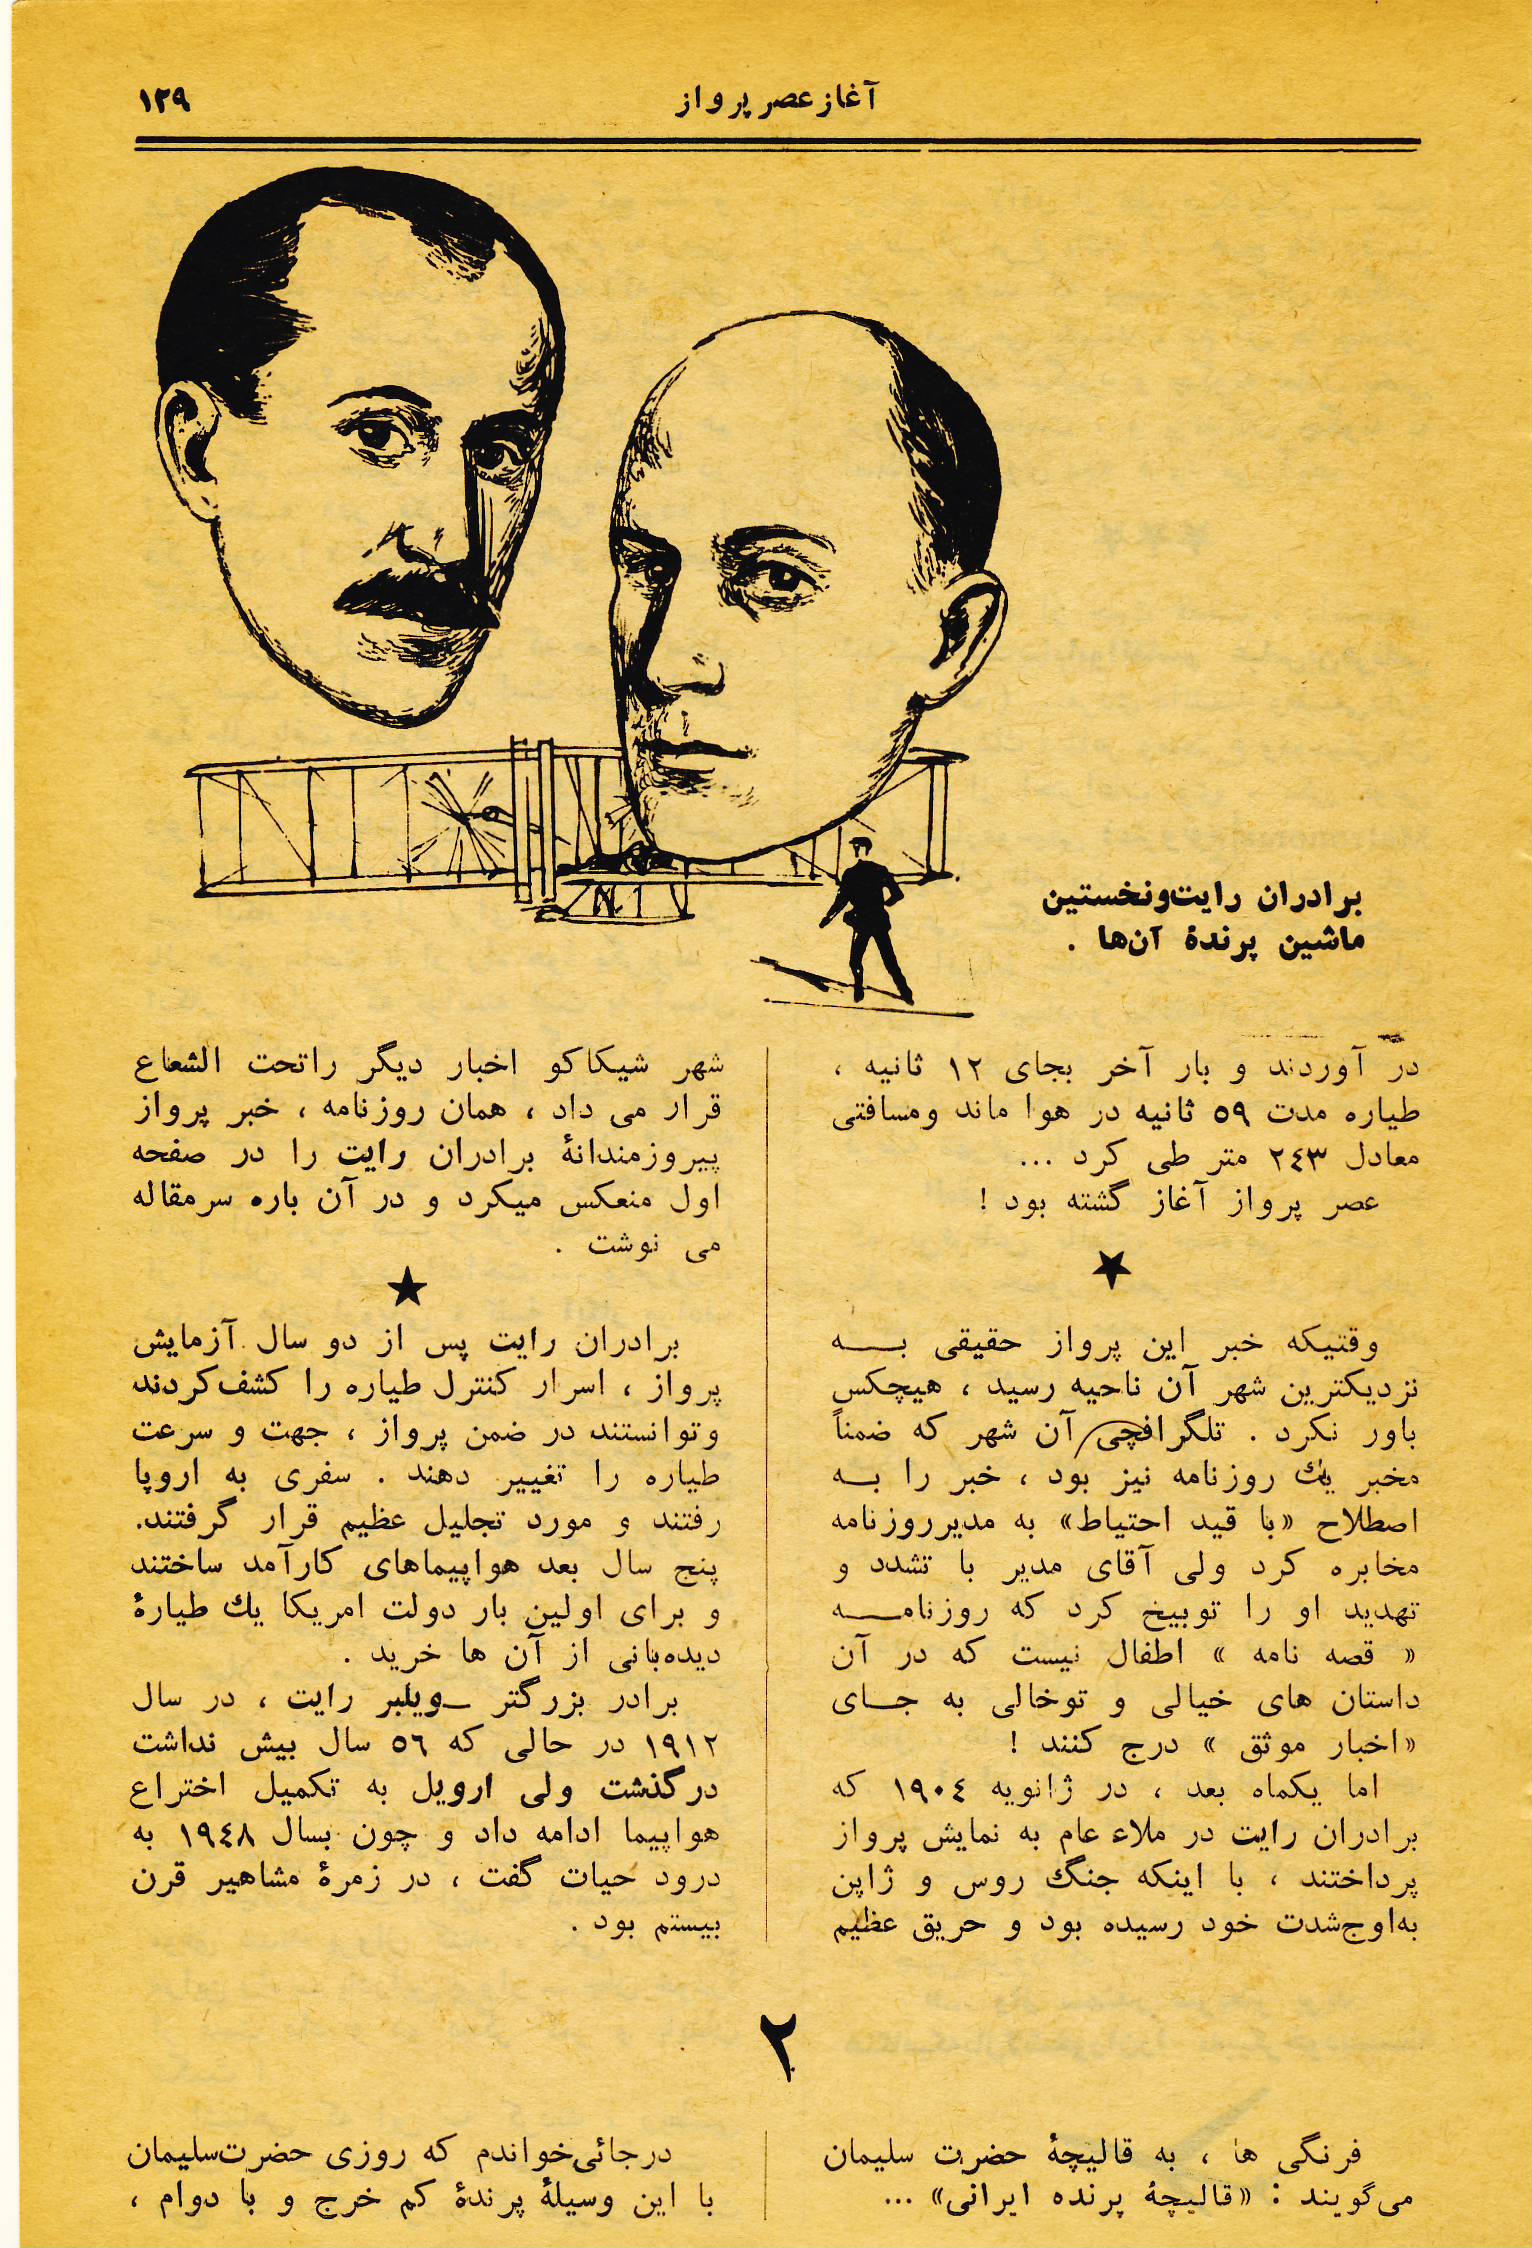 آغاز عصر پرواز
۱۲۹
برادران رایت‌و‌نخستین
ماشین پرندهٔ آن‌ها .
در آوردند و بار آخر بجای ۱۲ ثانیه ،
طیاره مدت ۵۹ ثانیه در هوا ماند ومسافتی
معادل ۲٤۳ متر طی کرد ...
عصر پرواز آغاز گشته بود !
★
وقتیکه خبر این پرواز حقیقی بـــه
نزدیکترین شهر آن ناحیه رسید ، هیچکس
باور نکرد . تلگرافچی آن شهر که ضمناً
مخبر یك روزنامه نیز بود ، خبر را بــه
اصطلاح «با قید احتیاط» به مدیرروزنامه
مخابره کرد ولی آقای مدیر با تشدد و
تهدید او را توبیخ کرد که روزنامـــه
« قصه نامه » اطفال نیست که در آن
داستان های خیالی و توخالی به جـــای
«اخبار موثق » درج کنند !
اما یکماه بعد ، در ژانویه ۱۹۰٤ که
برادران رایت در ملاء عام به نمایش پرواز
پرداختند ، با اینکه جنگ روس و ژاپن
به‌اوج‌شدت خود رسیده بود و حریق عظیم
شهر شیکاکو اخبار دیگر راتحت الشعاع
قرار می داد ، همان روزنامه ، خبر پرواز
پیروزمندانهٔ برادران رایت را در صفحه
اول منعکس میکرد و در آن باره سرمقاله
می نوشت .
★
برادران رایت پس از دو سال آزمایش
پرواز ، اسرار کنترل طیاره را کشف‌کردند
وتوانستند در ضمن پرواز ، جهت و سرعت
طیاره را تغییر دهند . سفری به اروپا
رفتند و مورد تجلیل عظیم قرار گرفتند.
پنج سال بعد هواپیماهای کارآمد ساختند
و برای اولین بار دولت امریکا یك طیارهٔ
دیده‌بانی از آن ها خرید .
برادر بزرگتر ــ‌ویلبر رایت ، در سال
۱۹۱۲ در حالی که ٥٦ سال بیش نداشت
درگذشت ولی ارویل به تکمیل اختراع
هواپیما ادامه داد و چون بسال ۱۹٤۸ به
درود حیات گفت ، در زمرهٔ مشاهیر قرن
بیستم بود .
۲
فرنگی ها ، به قالیچهٔ حضرت سلیمان
می‌گویند : «قالیچهٔ پرنده ایرانی» ...
درجائی‌خواندم که روزی حضرت‌سلیمان
با این وسیلهٔ پرندهٔ کم خرج و با دوام ،